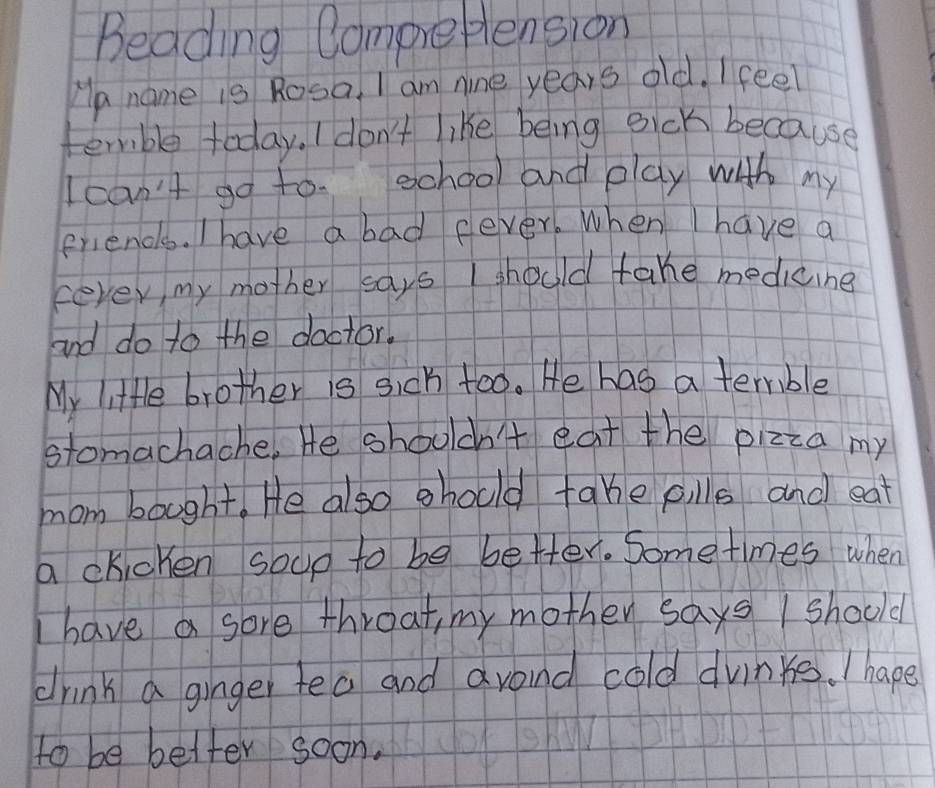 Reading Comprehension
My name is Rosa. I am nine years old. I feel
terrible today. I don't like being sick because
I can't go to school and play with my
friends. I have a bad fever. When I have a
fever, my mother says I should take medicine
and do to the doctor.
My little brother is sick too. He has a terrible
stomachache. He shouldn't eat the pizza my
mom bought. He also should take pills and eat
a chicken soup to be better. Sometimes when
I have a sore throat, my mother says I should
drink a ginger tea and avoind cold drinks. I hape
to be better soon.